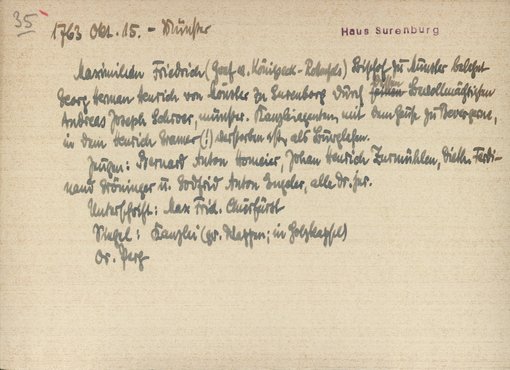 35
1763 Okt. 15. - Münster
Haus Surenburg
Maximilian Friedrich (Graf v. Königseck-Rotenfels) Bischof zu Münster belehnt
Georg Herman Henrich von Möntster zu Surenborg durch dessen Bevollmächtigten
Andreas Joseph Schroer, münster. Kanzleiagenten, mit dem Hause zu Bevergern,
in dem Henrich Cramer (!) verstorben ist, als Burglehen.
Zeugen: Bernard Anton Homeier, Johan Henrich Zurmühlen, Diethr. Ferdi-
nand Bröninger u. Godfrid Anton, alle Dr. jur.
Unterschrift: Max Frid. Churfürst
Siegel: Kanzlei (gr. Wappen; in Holzkapsel)
Or. Perg